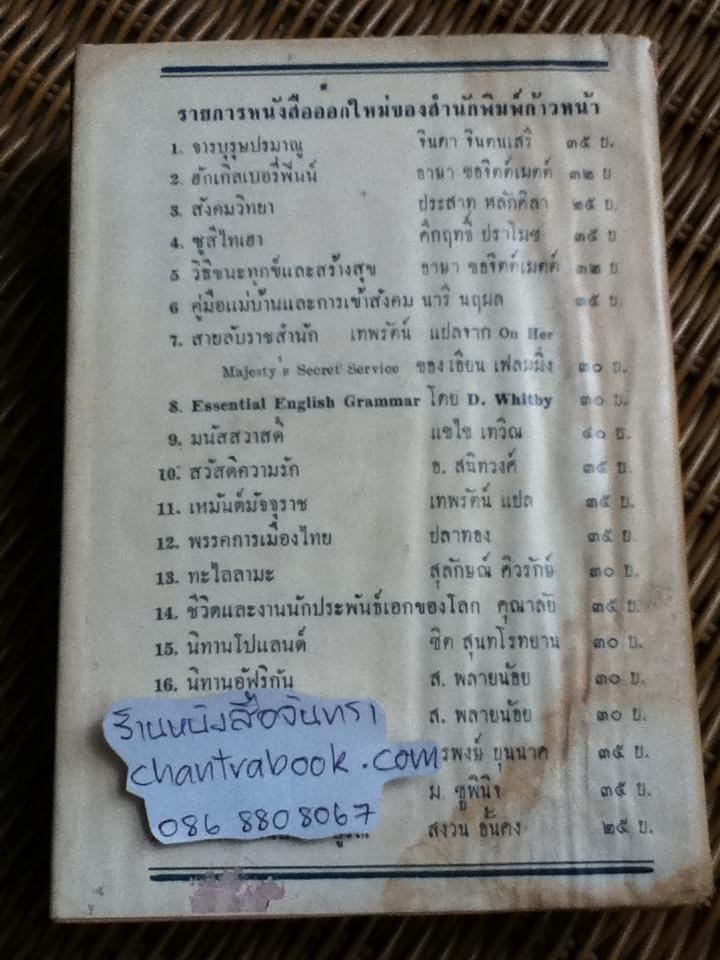 รายการหนังสือออกใหม่ของสำนักพิมพ์ก้าวหน้า
1. จารบุรุษปรมาณู จินดา จินตนเสรี ๓๕ บ.
2. ฮักเกิลเบอรี่ฟินน์ อาษา ขอจิตต์เมตต์ ๓๒ บ
3. สังคมวิทยา ประสาท หลักศิลา ๒๕ บ
4. ซูสีไทเฮา คึกฤทธิ์ ปราโมช ๓๕ บ
5 วิธีชนะทุกข์และสร้างสุข อาษา ขอจิตต์เมตต์ ๓๒ บ
6 คู่มือแม่บ้านและการเข้าสังคม นารี นฤมล ๓๕ บ.
7. สายลับราชสำนัก เทพรัตน์ แปลจาก On Her
Majesty's Secret Service ของ เอียน เฟลมมิ่ง ๓๐ บ.
8. Essential English Grammar โดย D. Whitby ๓๐ บ.
9. มนัสสวาสดิ์ แขไข เทวิณ ๔๐ บ.
10. สวัสดิความรัก อ. สนิทวงศ์ ๓๕ บ.
11. เหมันต์มัจจุราช เทพรัตน์ แปล ๓๕ บ.
12. พรรคการเมืองไทย ปลาทอง ๓๕ บ.
13. ทะไลลามะ สุลักษณ์ ศิวรักษ์ ๓๐ บ.
14. ชีวิตและงานนักประพันธ์เอกของโลก คุณาลัย ๓๕ บ.
15. นิทานโปแลนด์ ชิต สุนทโรทยาน ๓๐ บ.
16. นิทานอัฟริกัน ส. พลายน้อย ๓๐ บ.
ส. พลายน้อย ๓๐ บ.
รพงษ์ บุนนาค ๓๕ บ.
ม. ชูพินิจ ๓๕ บ.
สงวน อั้นคง ๒๕ บ.
ร้านหนังสือจันทรา
chantrabook.com
086 8808067